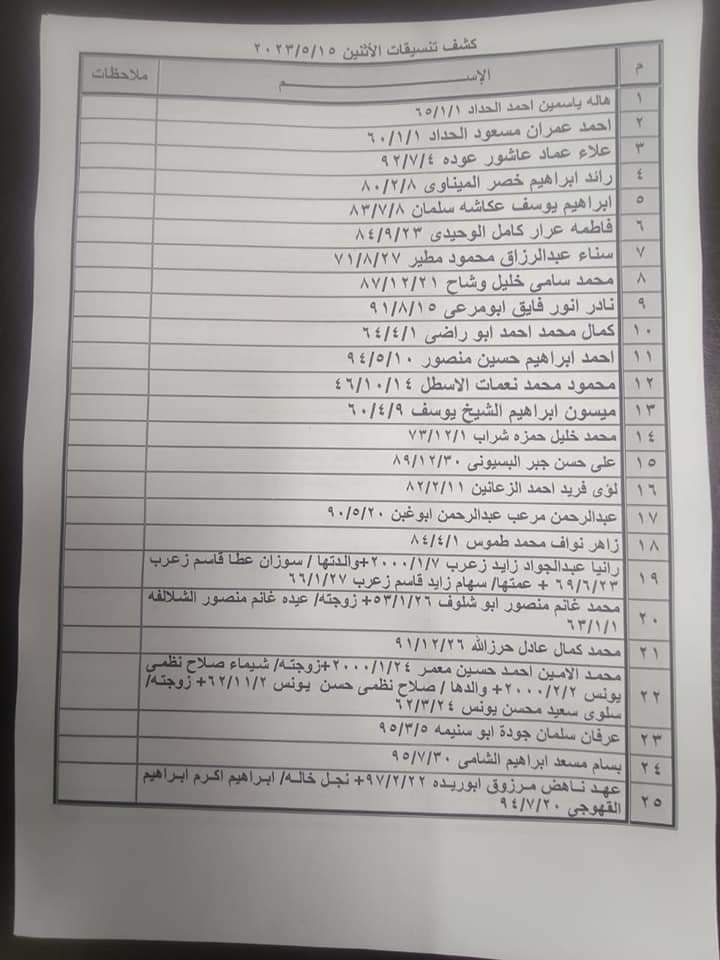 كشف تنسيقات الأثنين ٢٠٢٣/٥/١٥
م الإســـــــم ملاحظات
١ هاله ياسمين احمد الحداد ٦٥/١/١
٢ احمد عمران مسعود الحداد ٦٠/١/١
٣ علاء عماد عاشور عوده ٩٢/٧/٤
٤ رائد ابراهيم خضر الميناوى ٨٠/٢/٨
٥ ابراهيم يوسف عكاشه سلمان ٨٣/٧/٨
٦ فاطمه عرار كامل الوحيدى ٨٤/٩/٢٣
٧ سناء عبدالرزاق محمود مطير ٧١/٨/٢٧
٨ محمد سامى خليل وشاح ٨٧/١٢/٢١
٩ نادر انور فايق ابومرعى ٩١/٨/١٥
١٠ كمال محمد احمد ابو راضى ٦٤/٤/١
١١ احمد ابراهيم حسين منصور ٩٤/٥/١٠
١٢ محمود محمد نعمات الاسطل ٤٦/١٠/١٤
١٣ ميسون ابراهيم الشيخ يوسف ٦٠/٤/٩
١٤ محمد خليل حمزه شراب ٧٣/١٢/١
١٥ على حسن جبر البسيونى ٨٩/١٢/٣٠
١٦ لؤى فريد احمد الزعانين ٨٢/٢/١١
١٧ عبدالرحمن مرعب عبدالرحمن ابوغبن ٩٠/٥/٢٠
١٨ زاهر نواف محمد طموس ٨٤/٤/١
١٩ رانيا عبدالجواد زايد زعرب ٢٠٠٠/١/٧+والدتها / سوزان عطا قاسم زعرب
٦٩/٦/٢٣ + عمتها/ سهام زايد قاسم زعرب ٦٦/١/٢٧
٢٠ محمد غانم منصور ابو شلوف ٥٣/١/٢٦+ زوجته/ عيده غانم منصور الشلالفه
٦٣/١/١
٢١ محمد كمال عادل حرزالله ٩١/١٢/٢٦
٢٢ محمد الامين احمد حسين معمر ٢٠٠٠/١/٢٤+زوجته/ شيماء صلاح نظمى
يونس ٢٠٠٠/٢/٢+ والدها / صلاح نظمى حسن يونس ٦٢/١١/٢+ زوجته/
سلوى سعيد محسن يونس ٦٢/٣/٢٤
٢٣ عرفان سلمان جودة ابو سنيمه ٩٥/٣/٥
٢٤ بسام مسعد ابراهيم الشامى ٩٥/٧/٣٠
٢٥ عهد ناهض مرزوق ابوريده ٩٧/٢/٢٢+ نجل خاله/ ابراهيم اكرم ابراهيم
القهوجى ٩٤/٧/٢٠